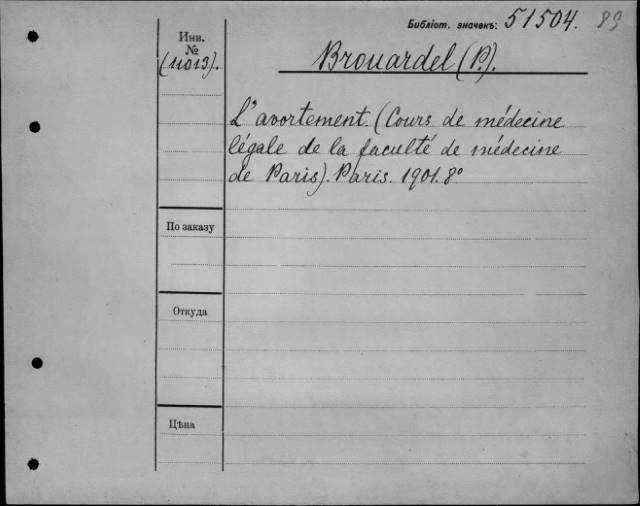 Библіот. значекъ: 51504. 83
Инв.
№
(11013).
Brouardel (P.).
L'avortement. (Cours de médecine
légale de la faculté de médecine
de Paris). Paris. 1901. 8º
По заказу
Откуда
Цѣна